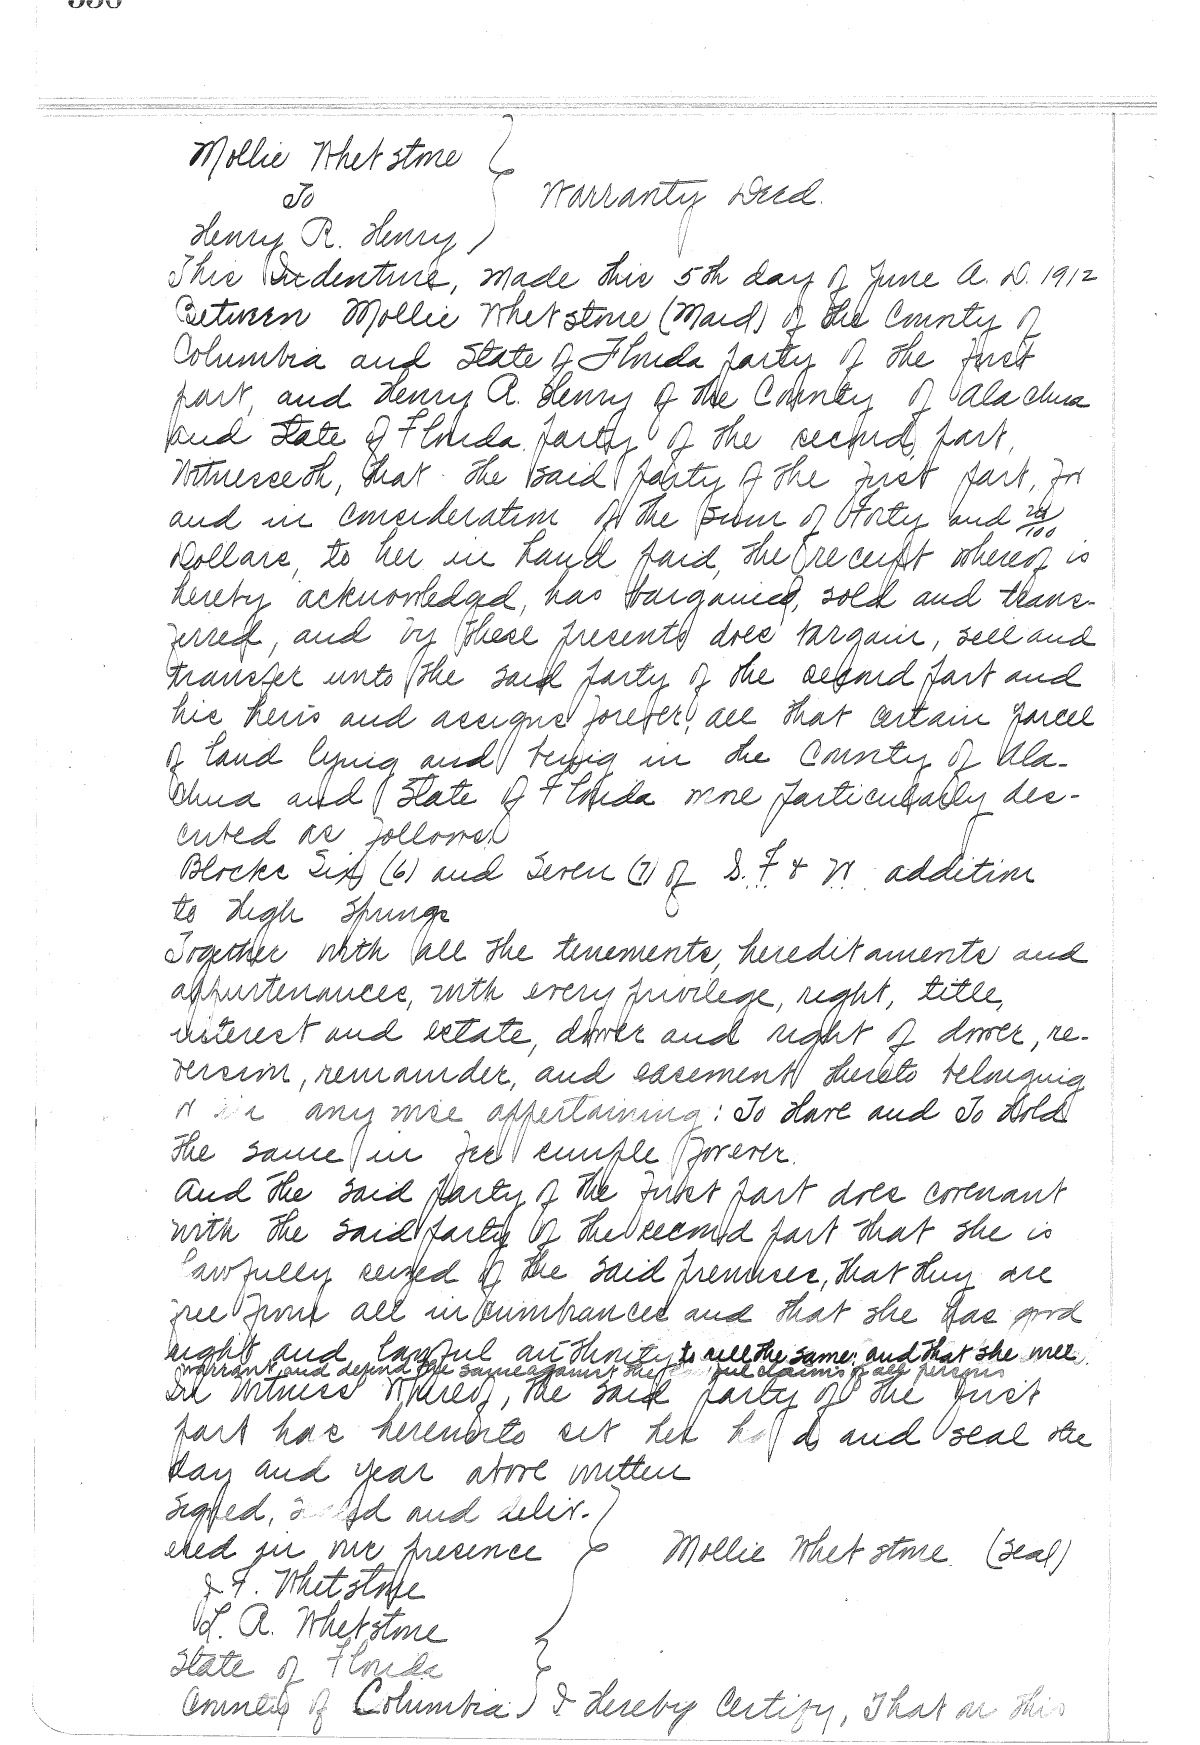 Mollie Whetstone
To
Warranty Deed.
Henry R. Henry
This Indenture, made this 5th day of June A. D. 1912
Between Mollie Whetstone (Maid) of the County of
Columbia and State of Florida party of the first
part, and Henry R. Henry of the County of Alachua
and State of Florida party of the second part,
Witnesseth, that the said party of the first part, for
and in consideration of the sum of Forty and /100
Dollars, to her in hand paid, the receipt whereof is
hereby acknowledged, has bargained, sold and trans-
ferred, and by these presents does bargain, sell and
transfer unto the said party of the second part and
his heirs and assigns forever, all that certain parcel
of land lying and being in the County of Ala-
chua and State of Florida more particularly des-
cribed as follows
Blocks Six (6) and Seven (7) of S. F. & W. addition
to High Springs
Together with all the tenements, hereditaments and
appurtenances, with every privilege, right, title,
interest and estate, dower and right of dower, re-
version, remainder, and easement thereto belonging
or in any wise appertaining: To Have and To Hold
the same in fee simple forever.
And the said party of the first part does covenant
with the said party of the second part that she is
lawfully seized of the said premises, that they are
free from all incumbrances and that she has good
right and lawful authority to sell the same; and that she will
warrant and defend the same against the lawful claims of all persons
In Witness Whereof, the said party of the first
part has hereunto set her hand and seal the
day and year above written
Signed, Sealed and deliv-
ered in our presence
Mollie Whetstone (Seal)
J. F. Whetstone
L. A. Whetstone
State of Florida
County of Columbia I Hereby Certify, That on this